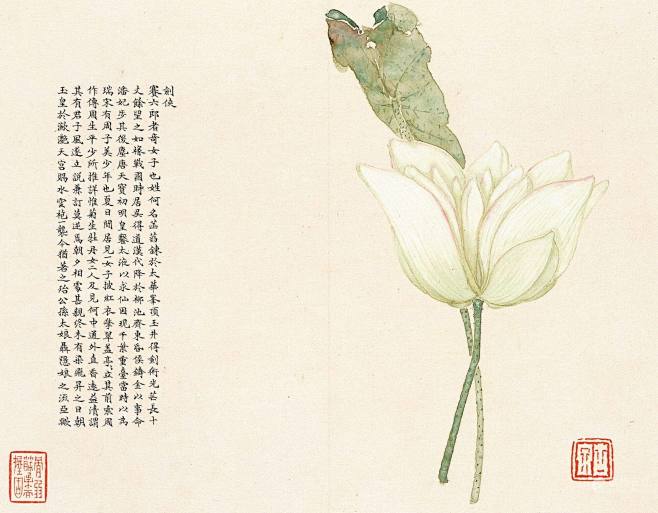 劍俠
賽六郎者奇女子也姓何名菡萏鍊於太華峯頂玉井得劍術光芒長十
丈餘望之如椽戰國時居吳得道漢代降於柳池齊東昏侯鑄金以事命
潘妃步其後塵唐天寶初明皇鑿太液以求仙因現千葉重臺當時以為
瑞宋有周子美少年也夏日閒居見一女子披紅衣擎翠蓋亭立其前索周
作傳周生平少所推詳惟菊生牡丹女二人及見何中道外直香遠益清謂
其有君子風遂立說兼訂莫逆焉朝夕相處甚親終未有染飛昇之日朝
玉皇於瀲灔天宮賜水雲袍一襲今猶著之殆公孫大娘聶隱娘之流亞歟